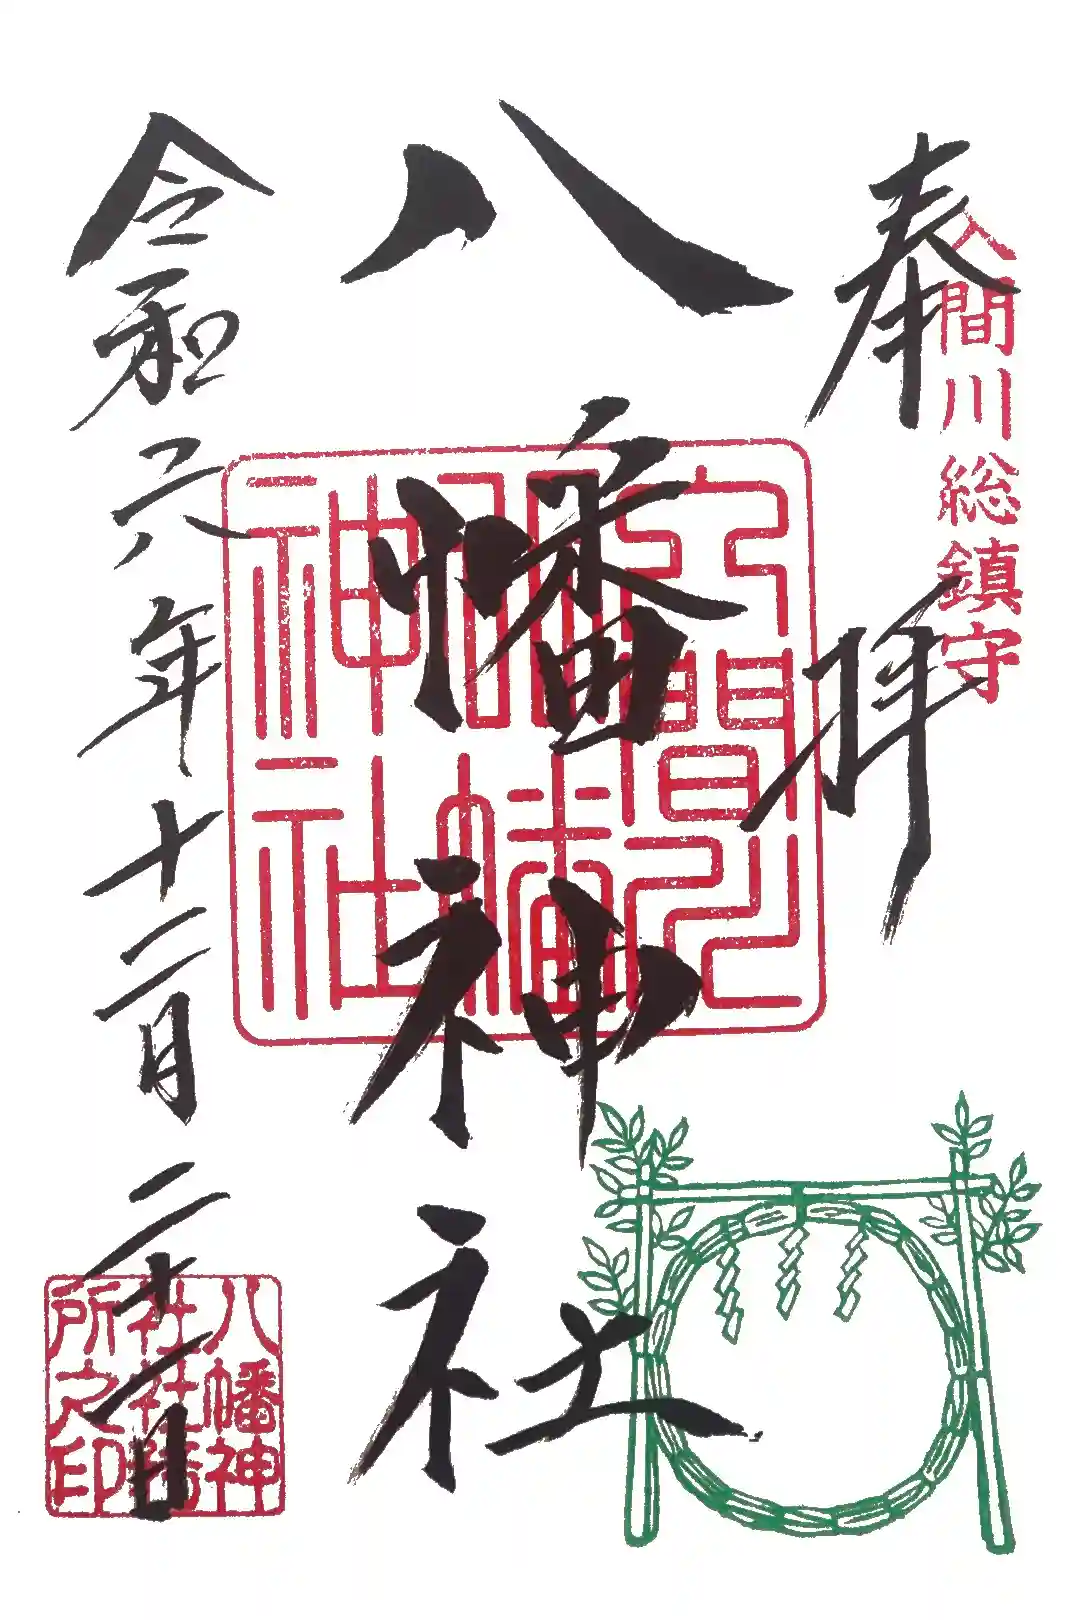 奉拝
入間川総鎮守
八幡神社
入間川
八幡
神社
令和六年十二月二十一日
八幡神
社社務
所之印